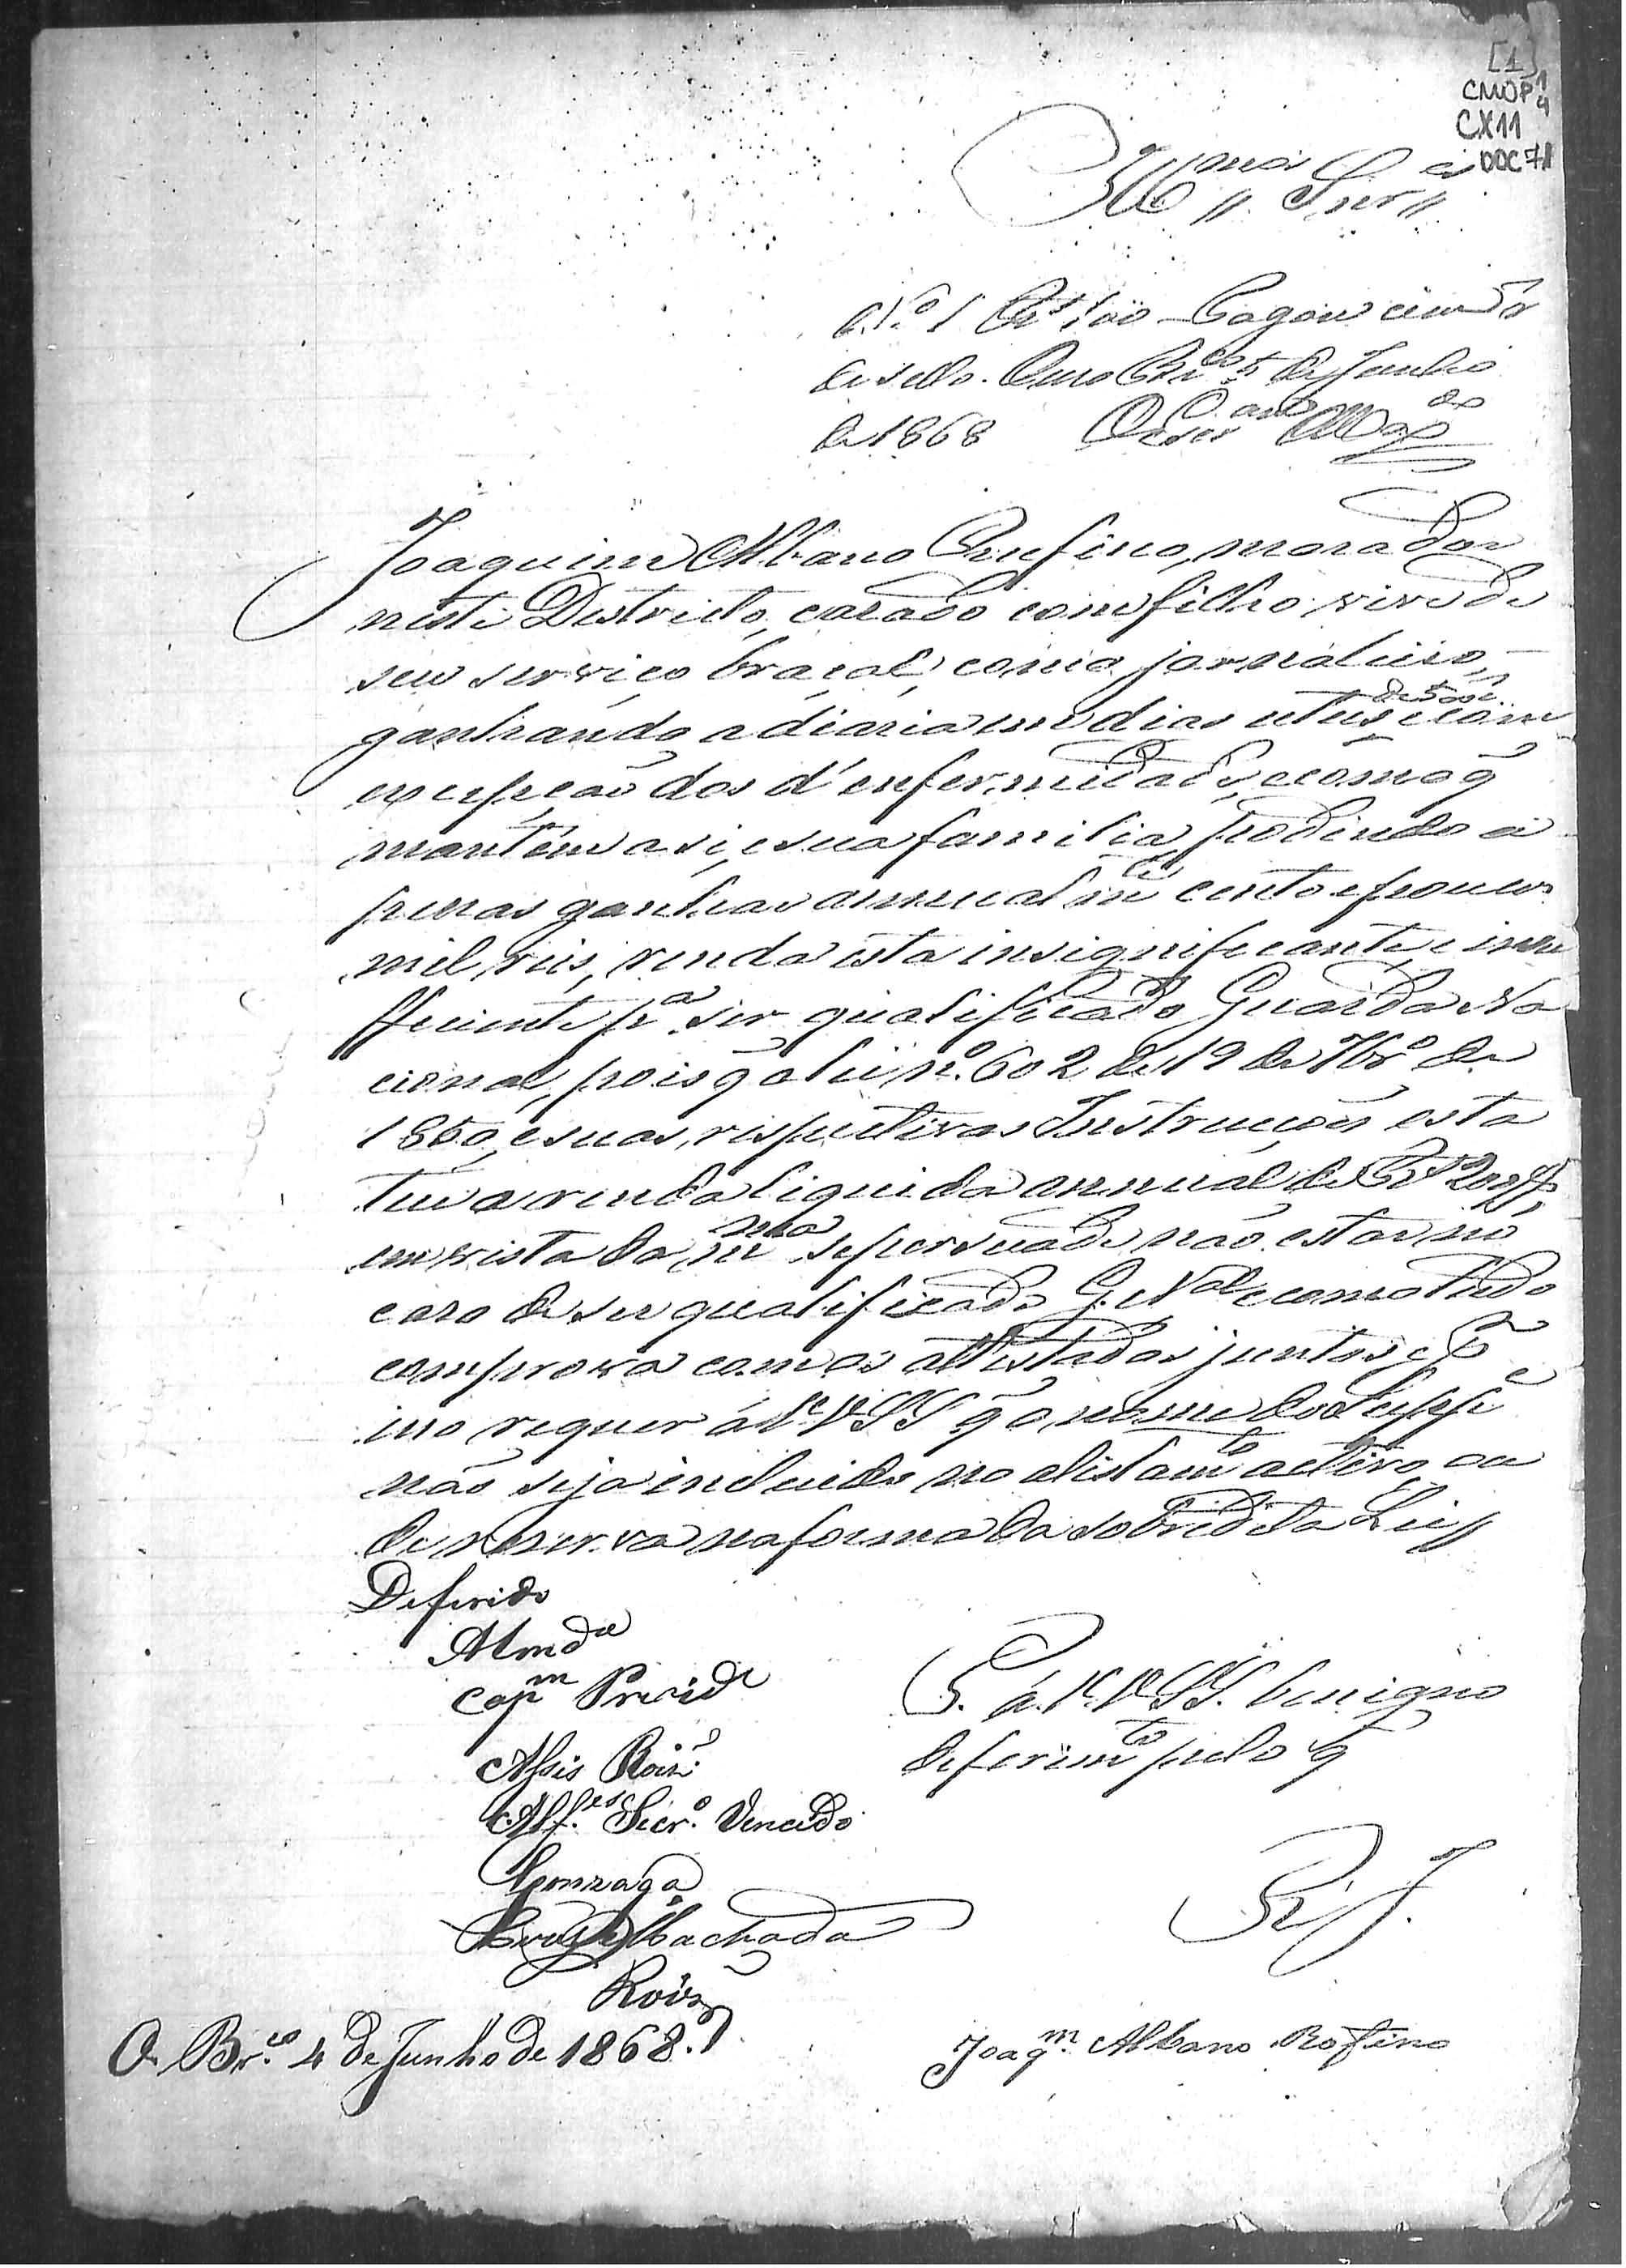 [1]
CMOP
CX11
DOC 71
Ill.mos Snr.es
N.º 1 Rs 100
de sello. Ouro Br.co 5 de Junho
de 1868
Joaquim Albano Rufino, morador
neste Districto, casado com filho vive de
seu serviço braçal, como jornaleiro,
ganhando a diaria em dias uteis de 500 e com
excepção dos d'enfermidade, e como q̃
mantem a si, e sua familia, podendo a
penas ganhar annualm.te cento e poucos
mil reis, renda esta insignificante, e insu
fficiente p.ª ser qualificado Guarda Na
cional, pois q̃ a lei n.º 602 de 19 de 7br.º de
1850, e suas respectivas Instrucções esta
tue a renda liquida annual de Rs 200$,
em vista da m.ma se persuade não estar no
caso de ser qualificado G. N.al e como tudo
comprova com os attestados juntos, e p
isso requer á V.V.SS q̃ o nome do Supp.e
não seja incluido no alistam.to activo, ou
de reserva na forma da sobredita Lei
Deferido
Almd.a
Cap.m Presid.e
P. á V.V.SS. benigno
deferim.to pelo q̃
Assis Roiz.
Alf.es Secr.º Vencido
Gonzaga
E. R. J.
Machado
Roiz
O. Br.co 4 de Junho de 1868.
Joaq.m Albano Rofino